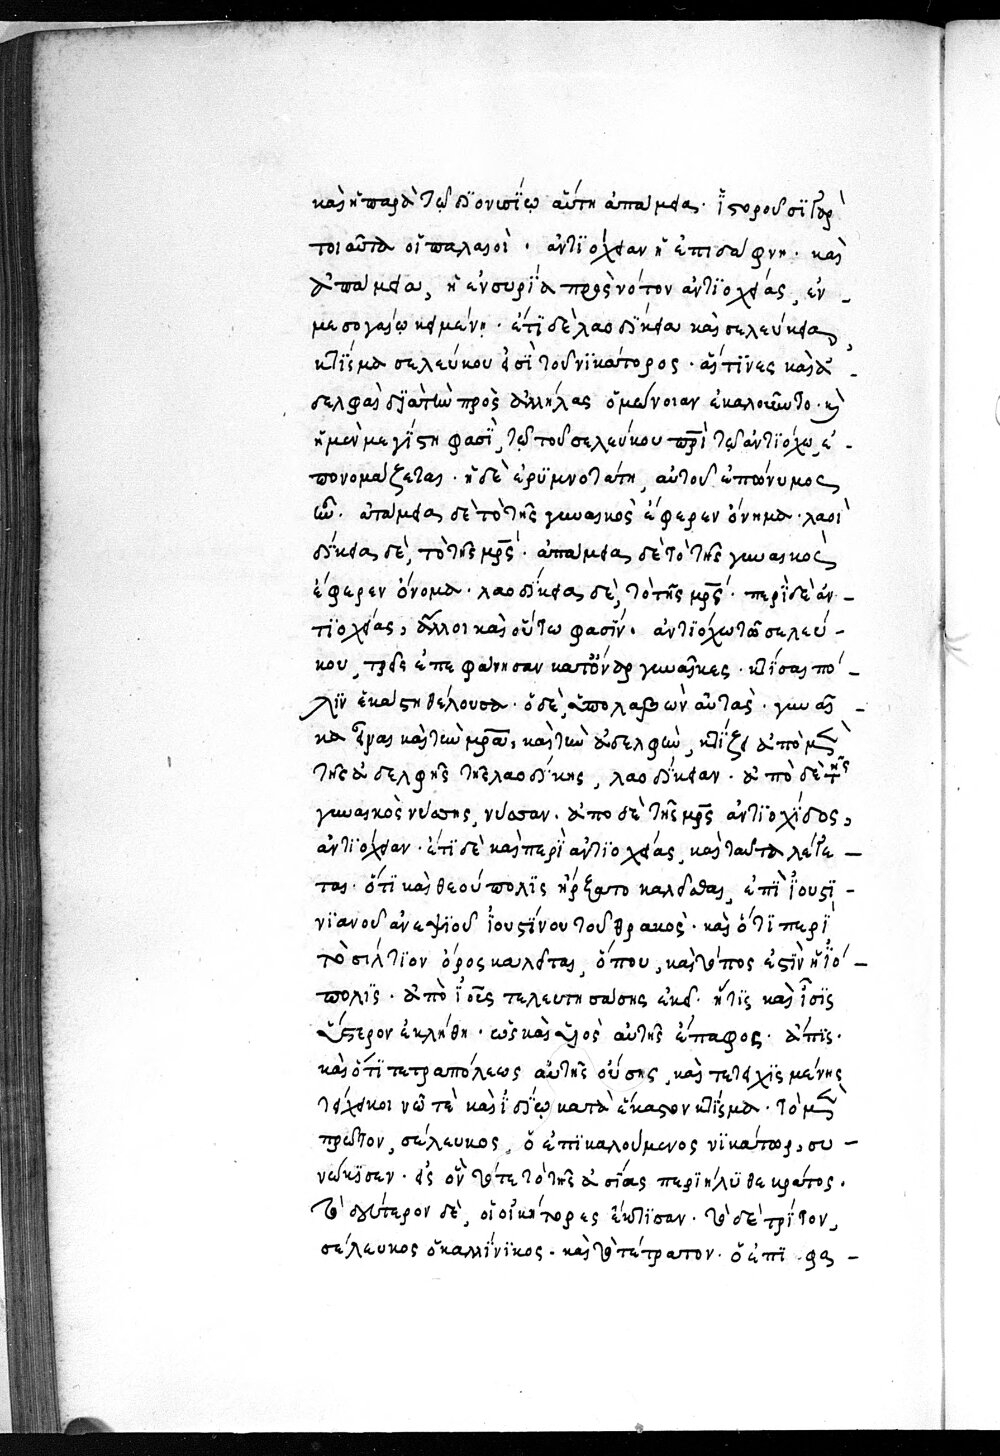 καὶ ἡ παρὰ τῷ διονυσίῳ αὕτη ἀπαμεία. ἱστοροῦσι γὰρ
τοιαῦτα οἱ παλαιοὶ. ἀντιόχειαν ἡ ἐπι δάφνη. καὶ
ἀπάμεια, ἡ ἐν συρίᾳ πρὸς νότον ἀντιοχείας, ἐν
μεσογαίῳ κειμένη. ἔτι δὲ λαοδίκεια καὶ σελεύκεια,
κτίσμα σελεύκου ἐστὶ τοῦ νικάτορος. αἵτινες καὶ ἀ
δελφαὶ διὰ τὴν πρὸς ἀλλήλας ὁμόνοιαν ἐκαλοῦντο. καὶ
ἡ μὲν μεγίστη φασὶ, τῷ τοῦ σελεύκου πρὶ τῷ ἀντιόχῳ, ἐ
πονομάζεται. ἡ δὲ ἐρυμνοτάτη, αὐτοῦ ἐπώνυμος
ὢν. ἀπάμεια δὲ τὸ τῆς γυναικὸς ἔφερεν ὄνημα. λαοι
δίκεια δὲ, τὸ τῆς μρς. ἀπάμεια δὲ τὸ τῆς γυναικὸς
ἔφερεν ὄνομα. λαοδίκεια δὲ, τὸ τῆς μρς. περὶ δὲ ἀν
τιοχείας, ἄλλοι καὶ οὕτω φασίν. ἀντιόχω τῶ σελεύ
κου, τρεῖς ἐπεφάνησαν κατ' ὄναρ γυναῖκες. κτίσαι πό
λιν ἑκάστη θέλουσα. ὁ δὲ, ἀπολαβὼν αὐτὰς. γυναῖ
κα καὶ τὴν μρα, καὶ τὴν ἀδελφὴν, κτίζει ἀπὸ μὲν
τῆς ἀδελφῆς τῆς λαοδίκης, λαοδίκειαν. ἀπὸ δὲ τῆς
γυναικὸς νύσσης, νύσσαν. ἀπο δὲ τῆς μρς ἀντιοχίδος,
ἀντιόχειαν. ἔτι δὲ καὶ περὶ ἀντιοχείας, καὶ ταῦτα λέγε
ται. ὅτι καὶ θεούπολις ἤρξατο καλεῖσθαι, ἐπὶ ἰουστι
νιανοῦ ἀνεψιοῦ ἰουστίνου τοῦ θρακὸς. καὶ ὅτι περὶ
τὸ σίλπιον ὄρος καλεῖται, ὅπου, καὶ τόπος ἐστὶν ἡ ἰό
πολις. ἀπὸ ἰοῦς τελευτησάσης ἐκεῖ. ἥτις καὶ ἶσις
ὕστερον ἐκλήθη. ὡς καὶ υἱὸς αὐτῆς ἔπαφος. ἄπις.
καὶ ὅτι τετραπόλεως αὐτῆς οὔσης, καὶ τετειχισμένης
τείχει κοινῶ τε καὶ ἰδίῳ κατὰ ἕκαστον κτίσμα. τὸ μὲν
πρῶτον, σέλευκος, ὁ ἐπικαλούμενος νικάτωρ, συ
νῴκισεν. εἰς ὃν τότε τὸ τῆς ἀσίας περιήλυθε κράτος.
τὸ δεύτερον δὲ, οἱ οἰκήτορες ἔκτισαν. τὸ δὲ τρίτον,
σέλευκος ὁ καλλίνικος. καὶ τὸ τέτρατον. ὁ ἐπι φα